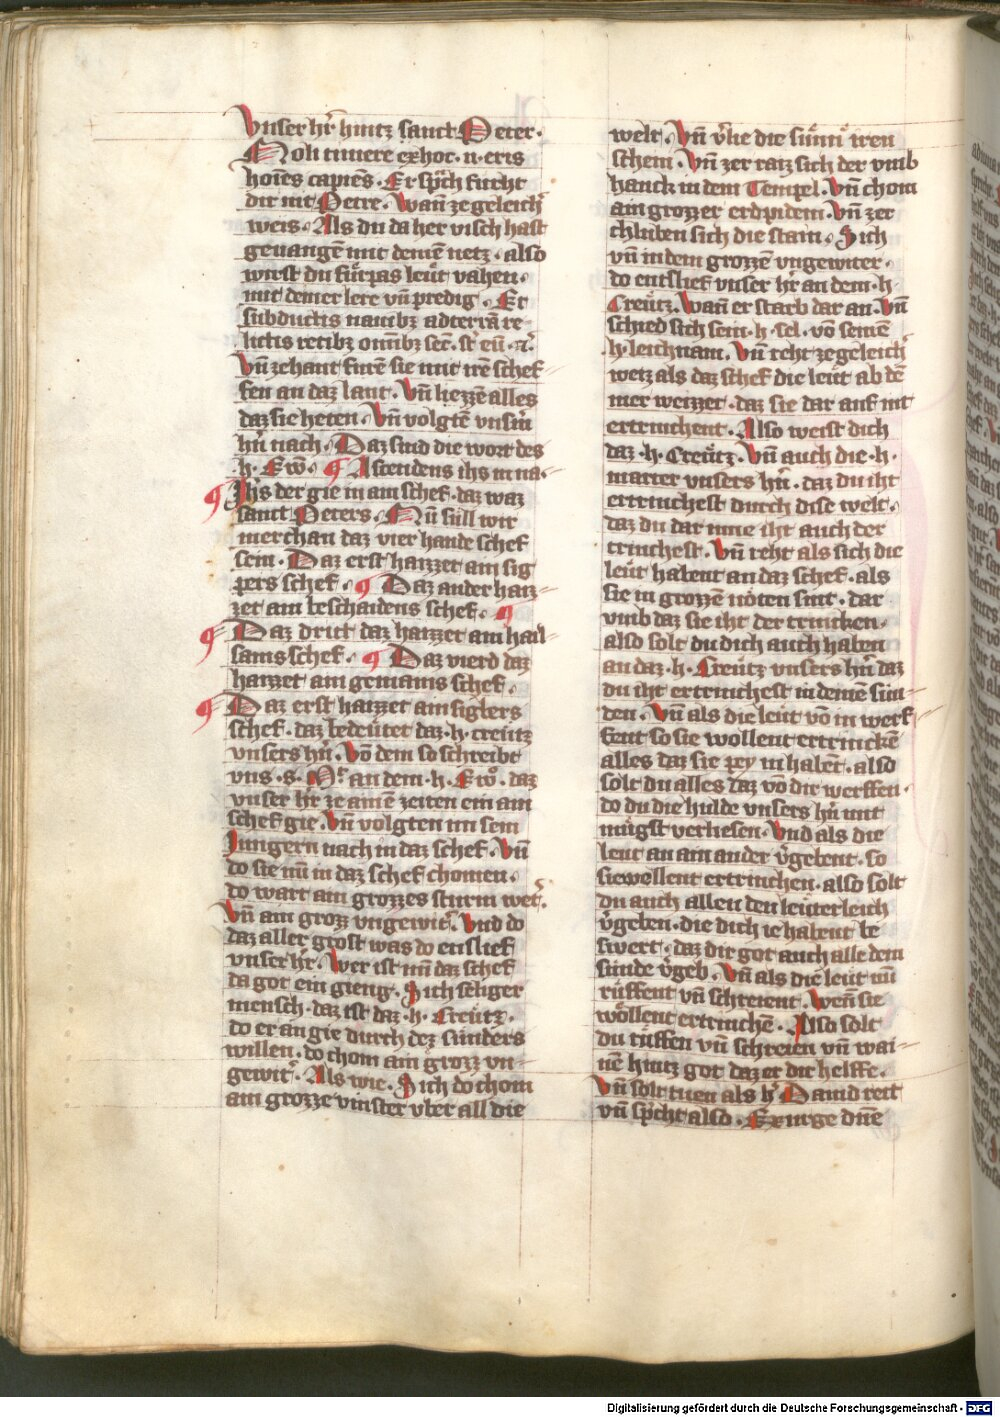 Vnser hr̄ hintz sanct Peter·
Noli timere exhoc· n· eris
hoīes capiēs· Er sp̄ch furcht
dir nit Petre· Wan̄ ze geleich
weis· Als du da her visch hast
geuangē mit deinē netz· also
wirst du fu̇rpas leu̇t vahen·
mit deiner lere vn̄ predig· Et
subductis nauibz ad terrā re-
lictis retibz om̄ibz sec̄· st eū· ⁊c̄
Vn̄ zehant fu̇rē sie mit irē schef
fen an daz lant· Vn̄ liezzen alles
daz sie heten· Vn̄ volgtē vnsm̄
hn̄ nach· Daz sind die wort des
·h· Ew̄· ¶ Ascendens ihs in na-
¶ Ihs der gie in ain schef· daz waz
sanct Peters· Nu̇ sull wir
merchan daz vier hande schef
sein· Daz erst haizzet ain sig
pers schef· ¶ Daz ander haiz-
zet ain beschaidens schef· ¶
¶ Daz dritt daz haizzet ain hail-
sams schef· ¶ Daz vierd daz
haizzet ain gemains schef·
¶ Daz erst haizzet ain siglers
schef· daz bedeu̇tet daz ·h· creu̇tz
vnsers hn̄· Vō dem so schreibt
vns ·S· M̄ an dem ·h· Ew̄· daz
vnser hr̄ ze ainē zeiten ein ain
schef gie· Vn̄ volgten im sein
Jungern nach in daz schef· Vn̄
do sie nu̇ in daz schef chomen·
do wart ain grozzes sturm wet̄·
Vn̄ ain groz vngewit̄· Vnd do
daz aller grost was do entslief
vnser hr̄· Wer ist nu̇ daz schef
da got ein gieng· Sich seliger
mensch· daz ist daz ·h· Creu̇tz·
do er an gie durch dez su̇nders
willen· do chom ain groz vn-
gewit̄· Als wie· Sich do chom
ain grozze vinster vber all die
welt· Vn̄ v̄lie die su̇nn̄ iren
schein· Vn̄ zer raiz sich der vmb
hanck in dem Tempel· Vn̄ chom
ain grozzer erdpidem· Vn̄ zer
chluben sich die stain· Sich
vn̄ in dem grozzē vngewiter·
do entslief vnser hr̄ an dem ·h·
Creu̇tz· Wan̄ er starb dar an· Vn̄
schied sich sein ·h· sel· vō seinē
·h· leichnam· Vn̄ reht ze geleich
weiz als daz schef die leu̇t ab dē
mer weizzet· daz sie dar auf nit
ertrinchent· Also weist dich
daz ·h· Creu̇tz· Vn̄ auch die ·h·
marter vnsers hn̄· daz du iht
ertrinchest durch dise welt·
daz du dar inne iht auch der
trinchest· Vn̄ reht als sich die
leu̇t habent an daz schef· als
sie in grozzē nöten sint· dar
vmb daz sie iht der trincken·
also solt du dich auch haben
an daz ·h· Creu̇tz vnsers hn̄ daz
du iht ertrinchest in deinē su̇n-
den· Vn̄ als die leu̇t vō in werf-
fent so sie wollent ertrinckē
alles daz sie pey in habēt· also
solt du alles daz vō dir werffen·
do du die hulde vnsers hn̄ mit
mu̇gst verliesen· Vnd als die
leut an ain ander v̄gebent· so
sie wellent ertrinchen· also solt
du auch allen den leu̇ten leich
v̄geben· die dich ie habent be
swert· daz dir got auch alle dein
su̇nde v̄geb· Vn̄ als die leu̇t nu̇
ru̇ffent vn̄ schreient· Wen̄ sie
wöllent ertrinchē· Also solt
du ru̇ffen vn̄ schreien vn̄ wai-
nē hintz got daz er dir helffe·
Vn̄ solt tuen als hr̄ Dauid reit
vn̄ sp̄cht also· Exurge dn̄e
Digitalisierung gefördert durch die Deutsche Forschungsgemeinschaft - DFG